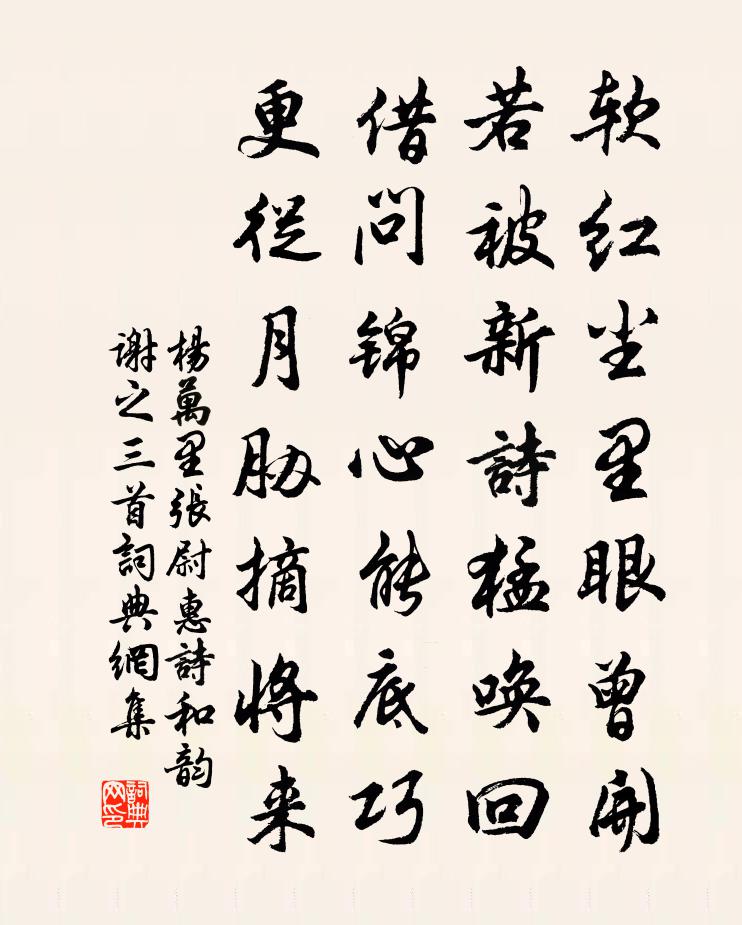 软红尘里眼曾開
若被新詩猛唤回
借问锦心能底巧
更從月胁摘将来
楊萬里張尉惠詩和韵
謝之三首詞典網集
詞典网印